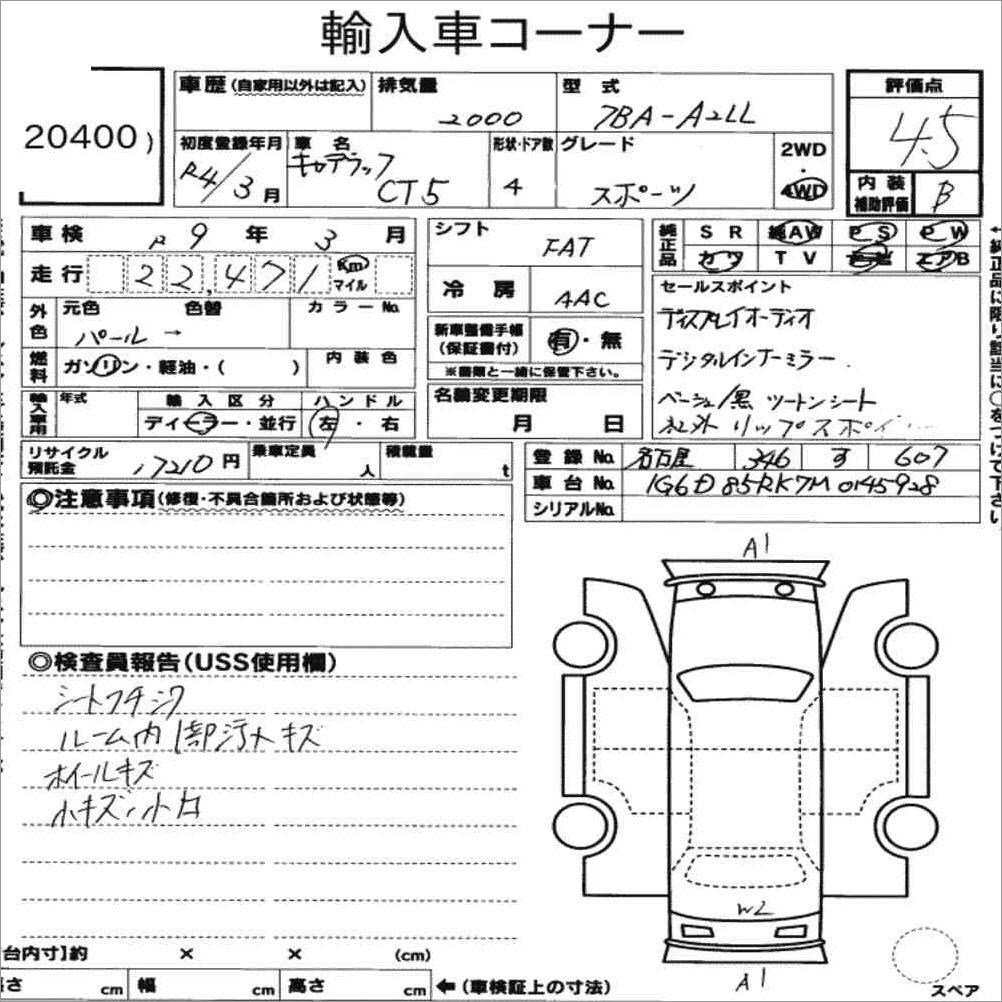 輸入車コーナー
20400)
車歴(自家用以外は記入)
排気量 2000
型式 7BA-A2LL
評価点 4.5
初度登録年月 R4/3月
車名 キャデラック CT5
形状・ドア数 4
グレード スポーツ
2WD・4WD
内装補助評価 B
車検 R9年3月
走行 22,471 Km マイル
シフト FAT
冷房 AAC
純正品 SR 純AW PS PW
カワ TV エアB
外色 元色 パール → 色替 カラーNo.
燃料 ガソリン・軽油・( ) 内装色
新車整備手帳(保証書付) 有・無
※書類と一緒に保管下さい。
セールスポイント
ディスプレイオーディオ
デジタルインナーミラー
ベージュ/黒 ツートンシート
社外リップスポイ
輸入車用 年式 輸入区分 ディーラー・並行 ハンドル 左・右
名義変更期限 月 日
リサイクル預託金 17210円 乗車定員 人 積載量 t
登録No. 名古屋 346 す 607
車台No. 1G6D85RK7M0145928
シリアルNo.
◎注意事項(修復・不具合箇所および状態等)
◎検査員報告(USS使用欄)
シートフチシワ
ルーム内1部汚れキズ
ホイールキズ
小キズ小凹
A1
W2
A1
台内寸】約 × × (cm)
長さ cm 幅 cm 高さ cm ←(車検証上の寸法)
スペア